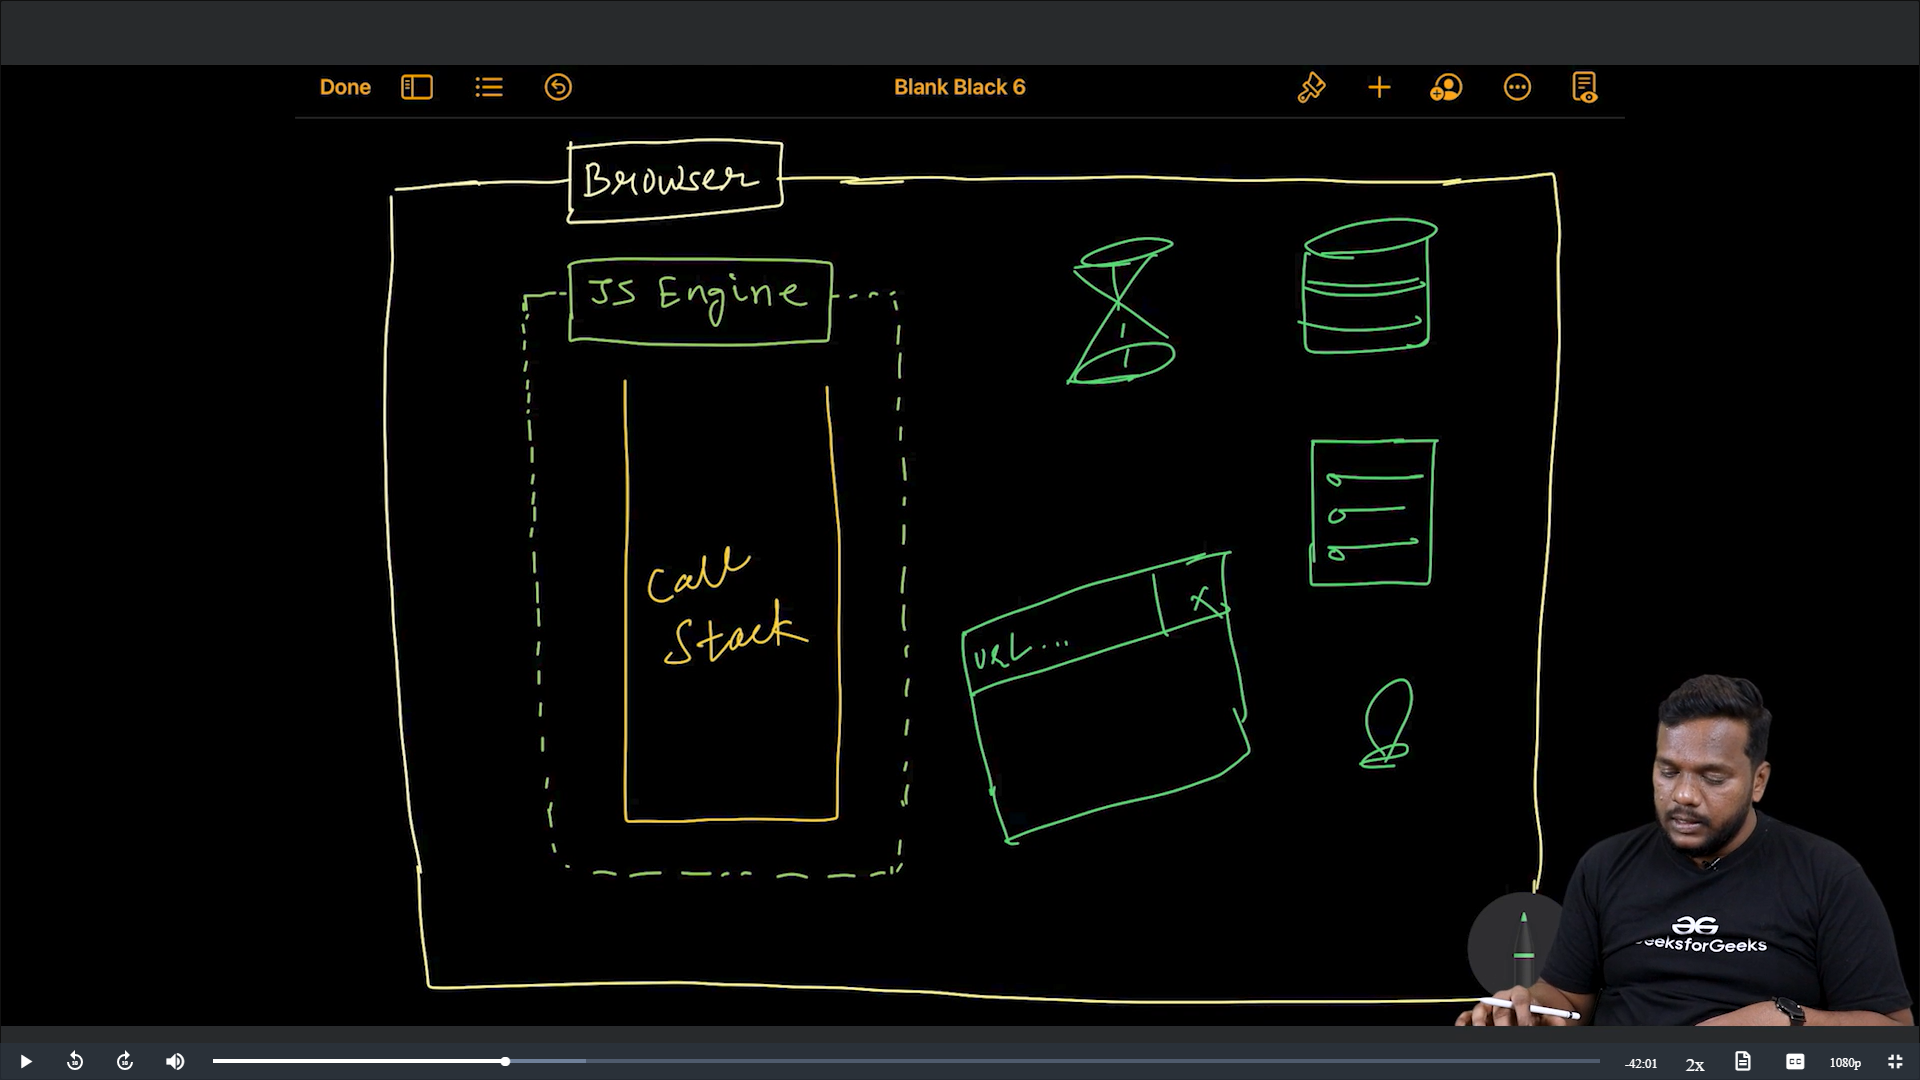 Done
Blank Black 6
Browser
JS Engine
Call
Stack
URL...
X
GG
GeeksforGeeks
-42:01
2x
CC
1080p